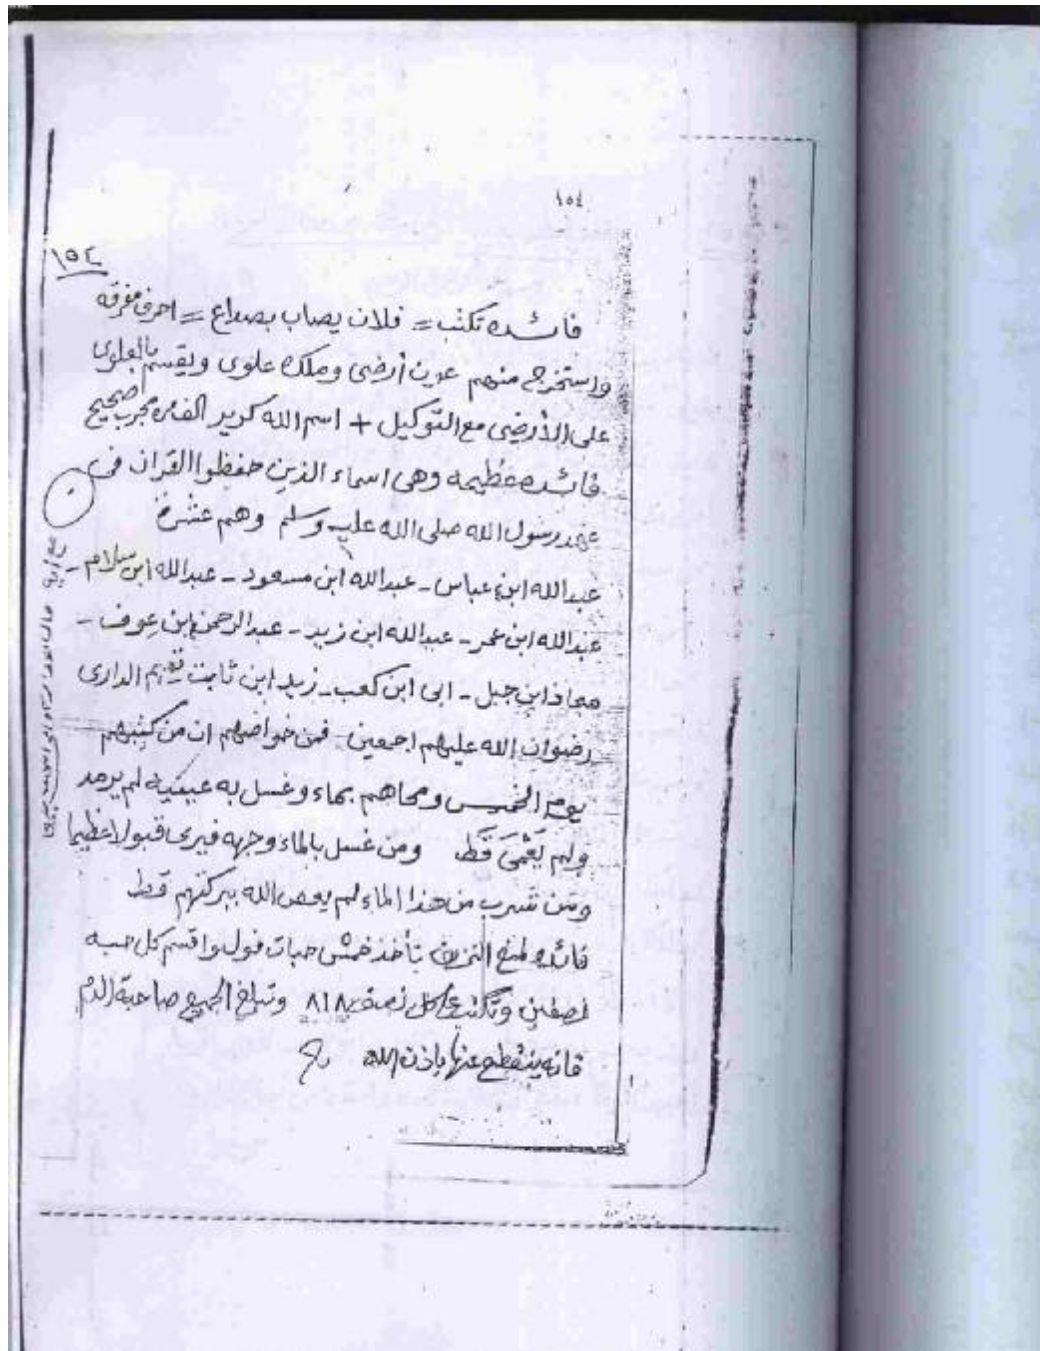 ١٥٤
١٥٤
فائده تكتب = فلان يصاب بصداع = احرف مفرقه
واستخرج منهم عون أرضى وملك علوى ويقسم بالعلوى
على الأرضى مع التوكيل + اسم الله كريد الف مره مجرب صحيح
فائده عظيمه وهى اسماء الذين حفظوا القران فى
عهد رسول الله صلى الله عليه وسلم وهم عشرة
عبدالله ابن عباس - عبدالله ابن مسعود - عبدالله ابن سلام -
عبدالله ابن عمر - عبدالله ابن زيد - عبدالرحمن ابن عوف -
معاذ ابن جبل - ابى ابن كعب - زيد ابن ثابت - تميم الدارى
رضوان الله عليهم اجمعين - فمن خواصهم ان من كتبهم
يوم الخميس ومحاهم بماء وغسل به عينيه لم يرمد
ولم يَعْمَىَ قَط ومن غسل بالماء وجهه فيرى قبولا عظيما
ومن شرب من هذا الماء لم يعص الله ببركتهم قط
فائده لمنع النزيف تأخذ خمس حبات فول واقسم كل حبه
نصفين وتكتب على كل نصف ٨١٨ وتبلغ الجميع صاحبة الدم
فانه ينقطع عنها باذن الله